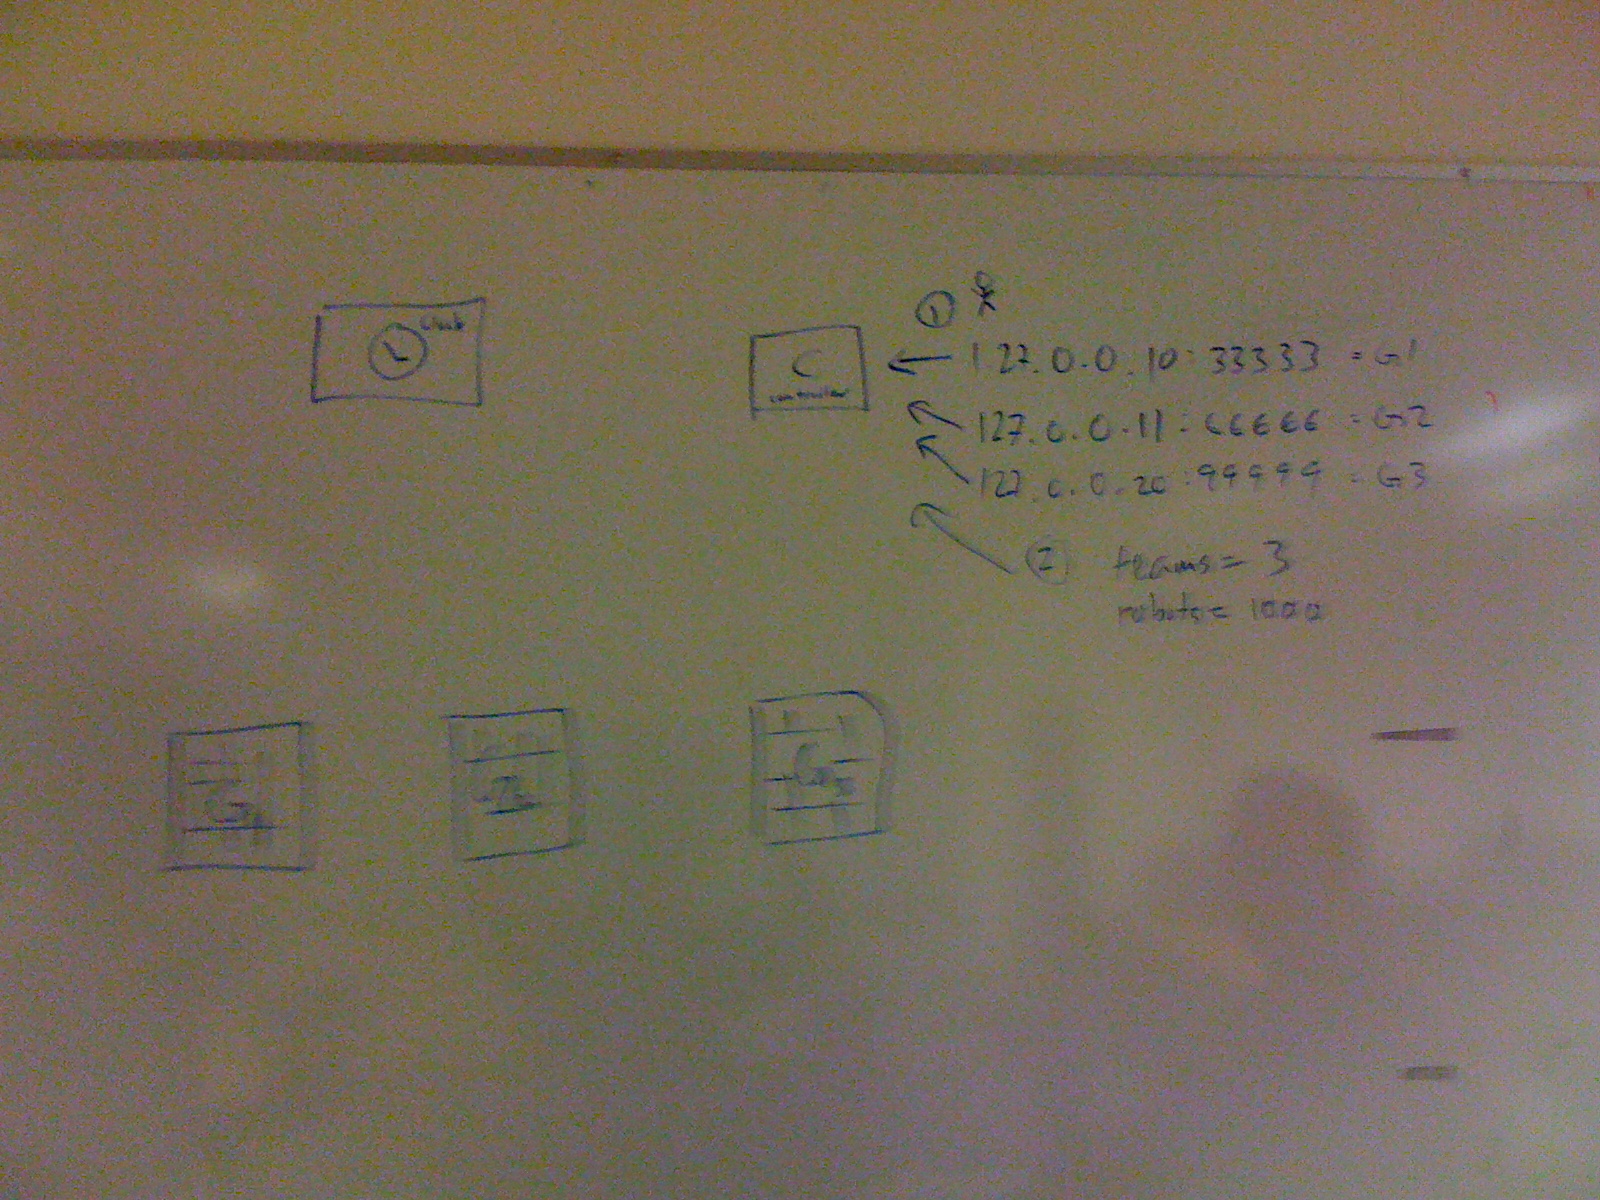 Clock
① 
C
controller
127.0.0.10:33333 = G1
127.0.0.11:66666 = G2
127.0.0.20:99999 = G3
② teams = 3
robots = 1000
G1
G2
G3